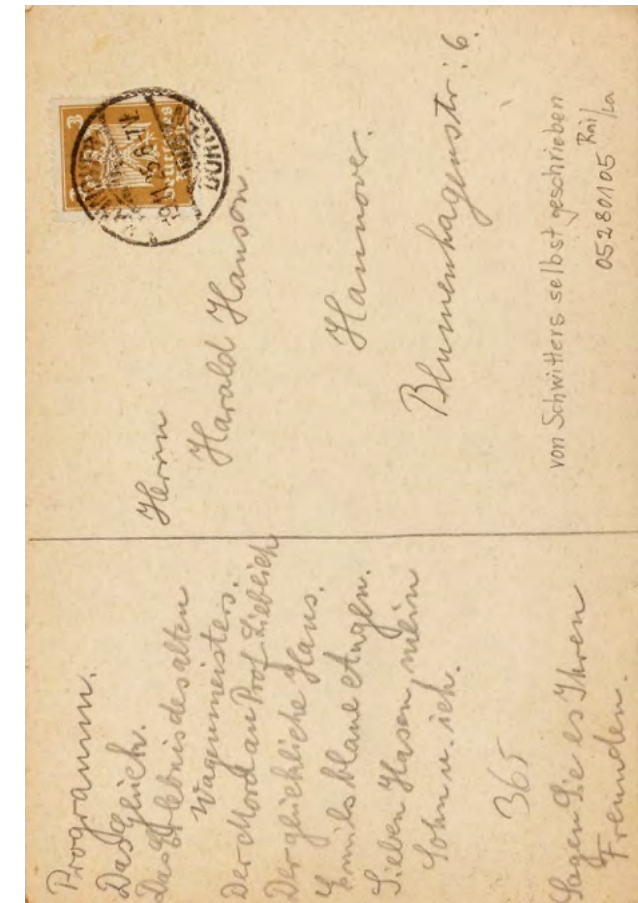 Programm.
Das Glück.
Das Erlebnis des alten
Wagenmeisters.
Der Mord an Prof. Lieblich
Der glückliche Hans.
Emils blaue Augen.
Sieben Hasen, mein
Sohn u. ich.
365
Sagen Sie es Ihren
Freunden.
Herrn
Harald Hanson.
Hannover.
Blumenhagenstr. 6.
von Schwitters selbst geschrieben
05280105 Rai/La
3 3